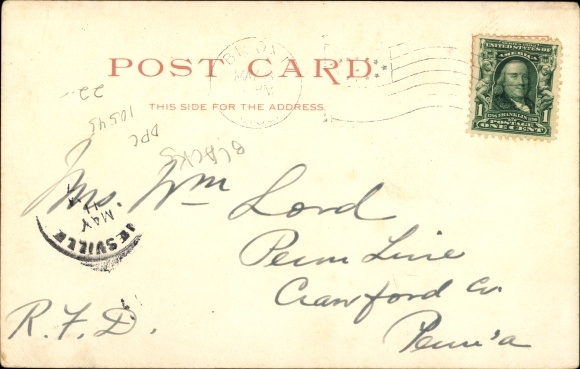 POST CARD.
THIS SIDE FOR THE ADDRESS.
SERIES 1902
UNITED STATES OF
AMERICA
FRANKLIN
1 1
POSTAGE
ONE CENT
22-
10545
DPC
BLACKS
Mrs. Wm Lord
Penn Line
Crawford Co
Penn'a
R.F.D.
MAY
ESVILLE